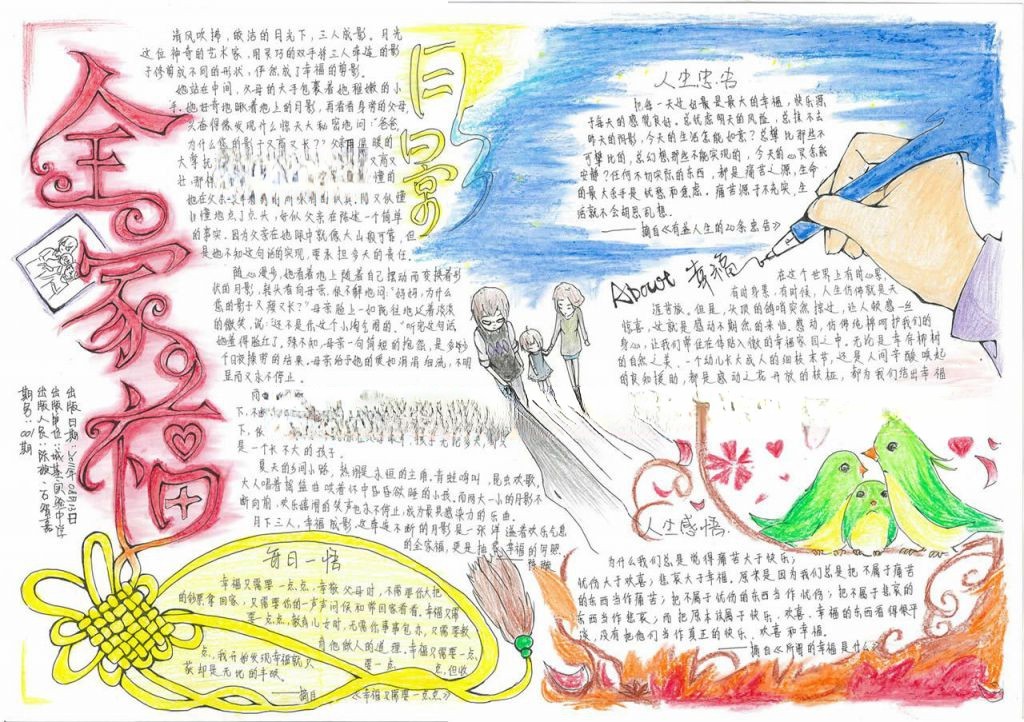 全家福
月影
清风吹拂，皎洁的月光下，三人成影。月光
这位神奇的艺术家，用灵巧的双手将三人牵连的影
子修剪成不同的形状，俨然成了幸福的剪影。
她站在中间，父母的大手包裹着她稚嫩的小
手。她好奇地瞅着地上的月影，再看看身旁的父母，
头奋得像发现什么惊天大秘密地问："爸爸，
为什么您的影子又高又长？"
大掌抚
又高又
壮，那得
懂的
懂地点了点头，好似父亲在陈述一个简单
的事实。因为父亲在她眼中就像大山般可靠，但
是她不知这句话的实现，要承担多大的责任。
随心漫步，她看着地上随着自己摆动而变换着形
状的月影，转头看向母亲，很不解地问："妈妈，为什么
您的影子又瘦又长？"母亲脸上一如既往地泛着淡淡
的微笑，说："还不是你这个小淘气闹的。"听完这句话
她羞得脸红了，殊不知，母亲一句简短的抱怨，是多少
个日夜操劳的结果。母亲给予他的爱如涓涓细流，不明
显而又永不停止。
下，
下，依
是一个长不大的孩子。
夏天的乡间小路，热闹是永恒的主角，青蛙呱叫，昆虫欢歌，
大人唱着摇篮曲哄着怀中昏昏欲睡的小孩，而两大一小的月影不
断向前，欢乐嬉闹的笑声也永不停止，成为最具感染力的乐曲。
月下三人，幸福成影，这牵连不断的月影是一张洋溢着欢乐气息
的全家福，更是抽象幸福的写照。
人生忠告
把每一天过好就是最大的幸福，快乐源
于每天的感觉良好。总忧虑明天的风险，总抹不去
昨天的阴影，今天的生活怎能如意？总攀比那些不
可攀比的，总幻想那些不能实现的，今天的心灵怎能
安静？任何不切实际的东西，都是痛苦之源，生命
的最大杀手是忧愁和焦虑。痛苦源于不充实，生
活就不会胡思乱想。
——摘自《有益人生的20条忠告》
About 幸福
在这个世界上有时心累，
有时身累，有时候，人生仿佛就是一
道苦旅。但是，头顶的鸽哨突然掠过，让人顿感一丝
惊喜，这就是感动不期然的来临。感动，仿佛纯棉呵护我们的
身心，让我们常住在体贴入微的幸福家园之中。无论是幸存柳树
的自然之美，一个幼儿长大成人的细枝末节，还是人间辛酸唤起
的良知援助，都是感动之花开放的枝桠，都为我们结出幸福
出版日期：2011年08月13日
出版单位：城基实验中学
期号：001期
每日一悟
幸福只需要一点点，孝敬父母时，不需要你大把
的钞票拿回家，只需要你的一声声问候和常回家看看，幸福只需
要一点点，教育儿女时，无需你事事包办，只需要教
育他做人的道理，幸福只需要一点
点，我开始发现幸福就
要一点
点，但收
获却是无比的丰硕。
——摘自《幸福只需要一点点》
人生感悟
为什么我们总是觉得痛苦大于快乐；
忧伤大于欢喜；悲哀大于幸福。原来是因为我们总是把不属于痛苦
的东西当作痛苦；把不属于忧伤的东西当作忧伤；把不属于悲哀的
东西当作悲哀；而把原本该属于快乐、欢喜、幸福的东西看得很平
淡，没有把他们当作真正的快乐、欢喜和幸福。
——摘自《所谓的幸福是什么》